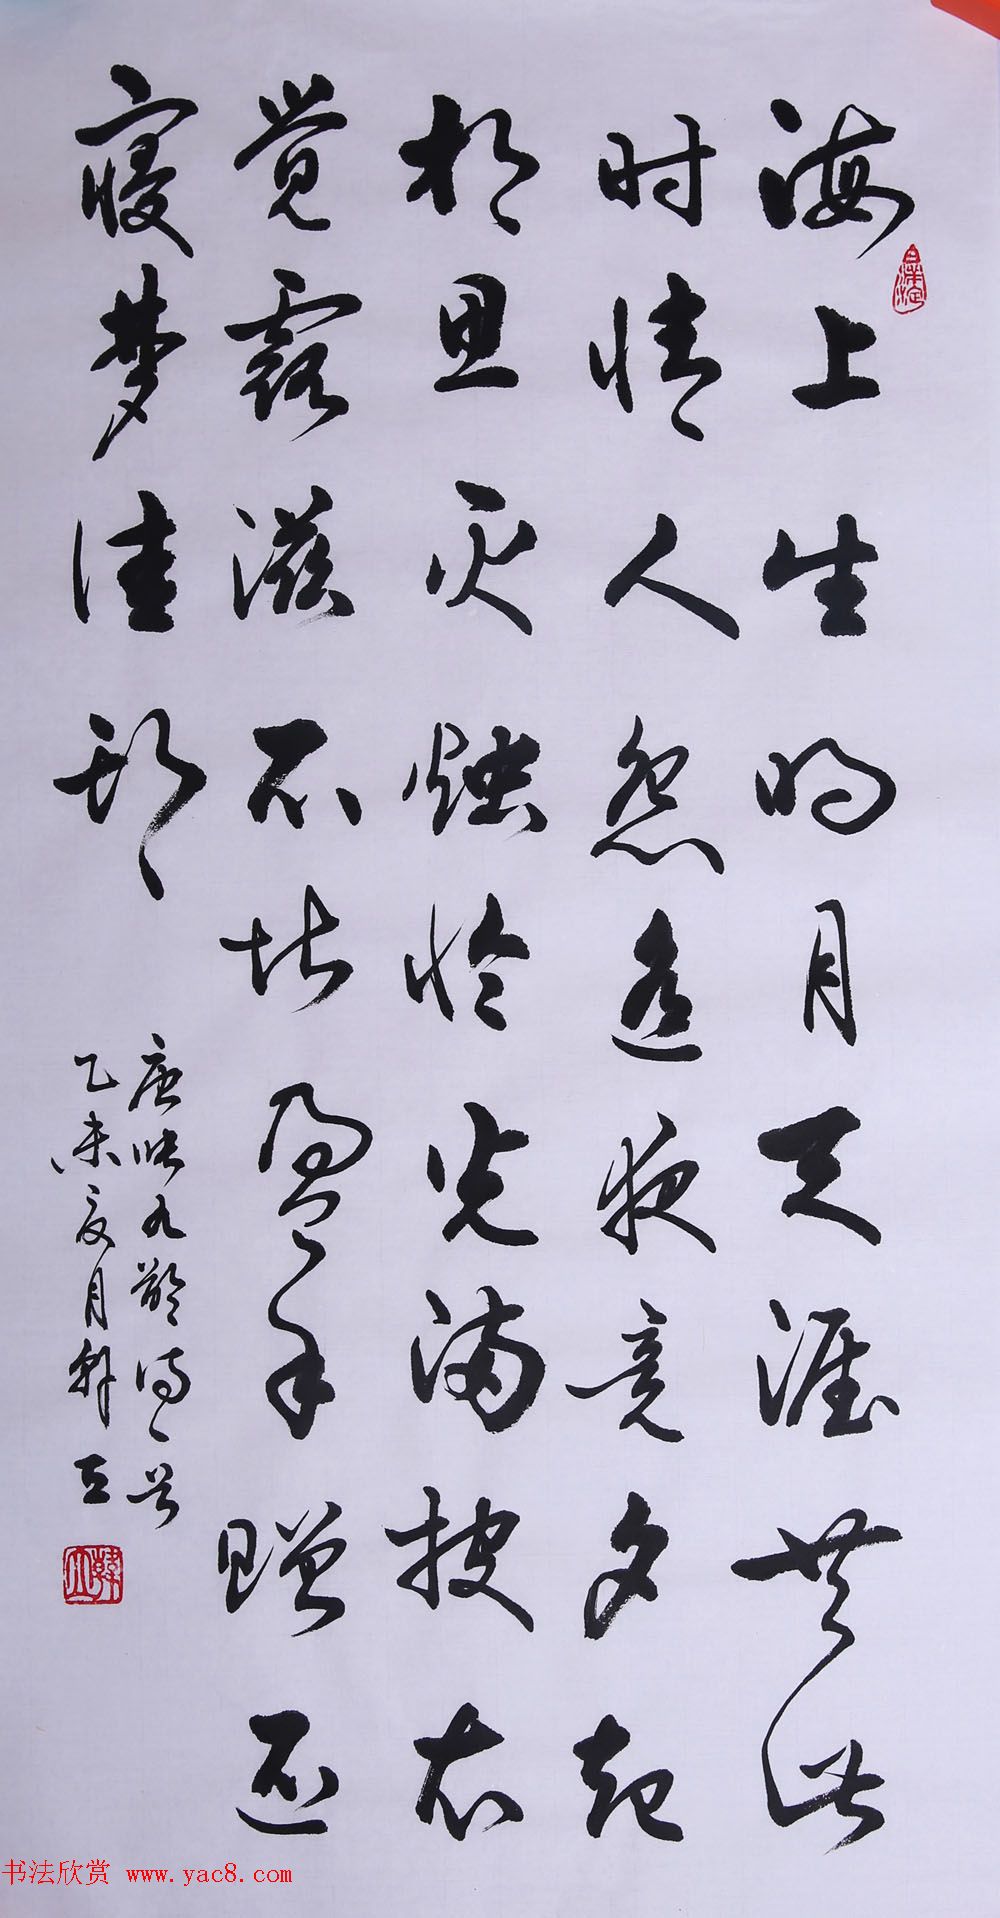 海上生明月天涯共此
时情人怨遥夜竟夕起
相思灭烛怜光满披衣
觉露滋不堪盈手赠还
寝梦佳期
唐张九龄诗一首
乙未夏月韩立
韩立
书法欣赏 www.yac8.com